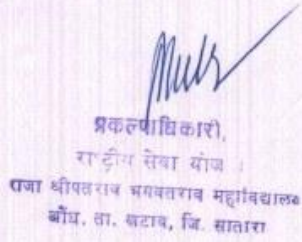 प्रकल्पाधिकारी,
राष्ट्रीय सेवा योज
राजा श्रीपतराव भगवंतराव महाविद्यालय
औंध. ता. खटाव, जि. सातारा